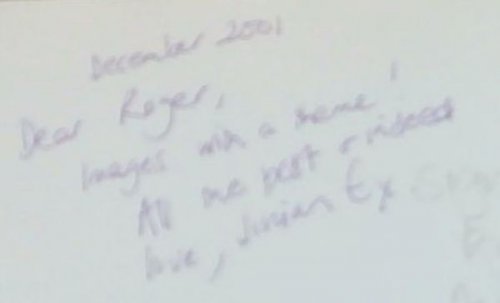 December 2001
Dear Roger,
Images with a theme!
All the best & indeed
love, Vivian Ex